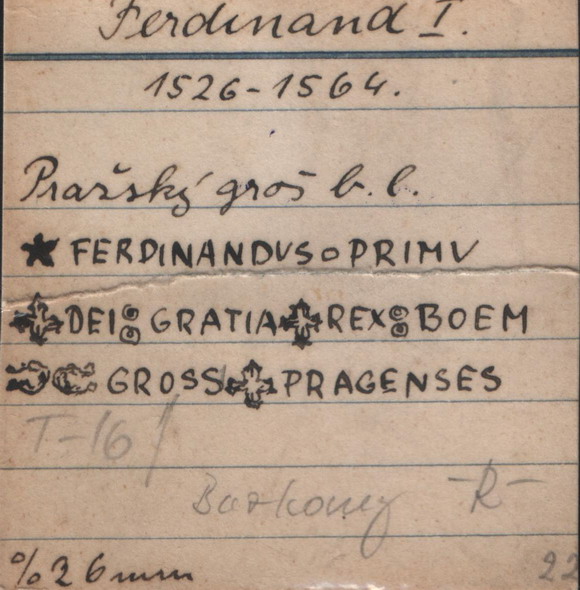 Ferdinand I.
1526-1564.
Pražský groš b. l.
★ FERDINANDVS o PRIMV
DEI GRATIA REX BOEM
GROSS PRAGENSES
T-16/
-R-
% 26mm
22